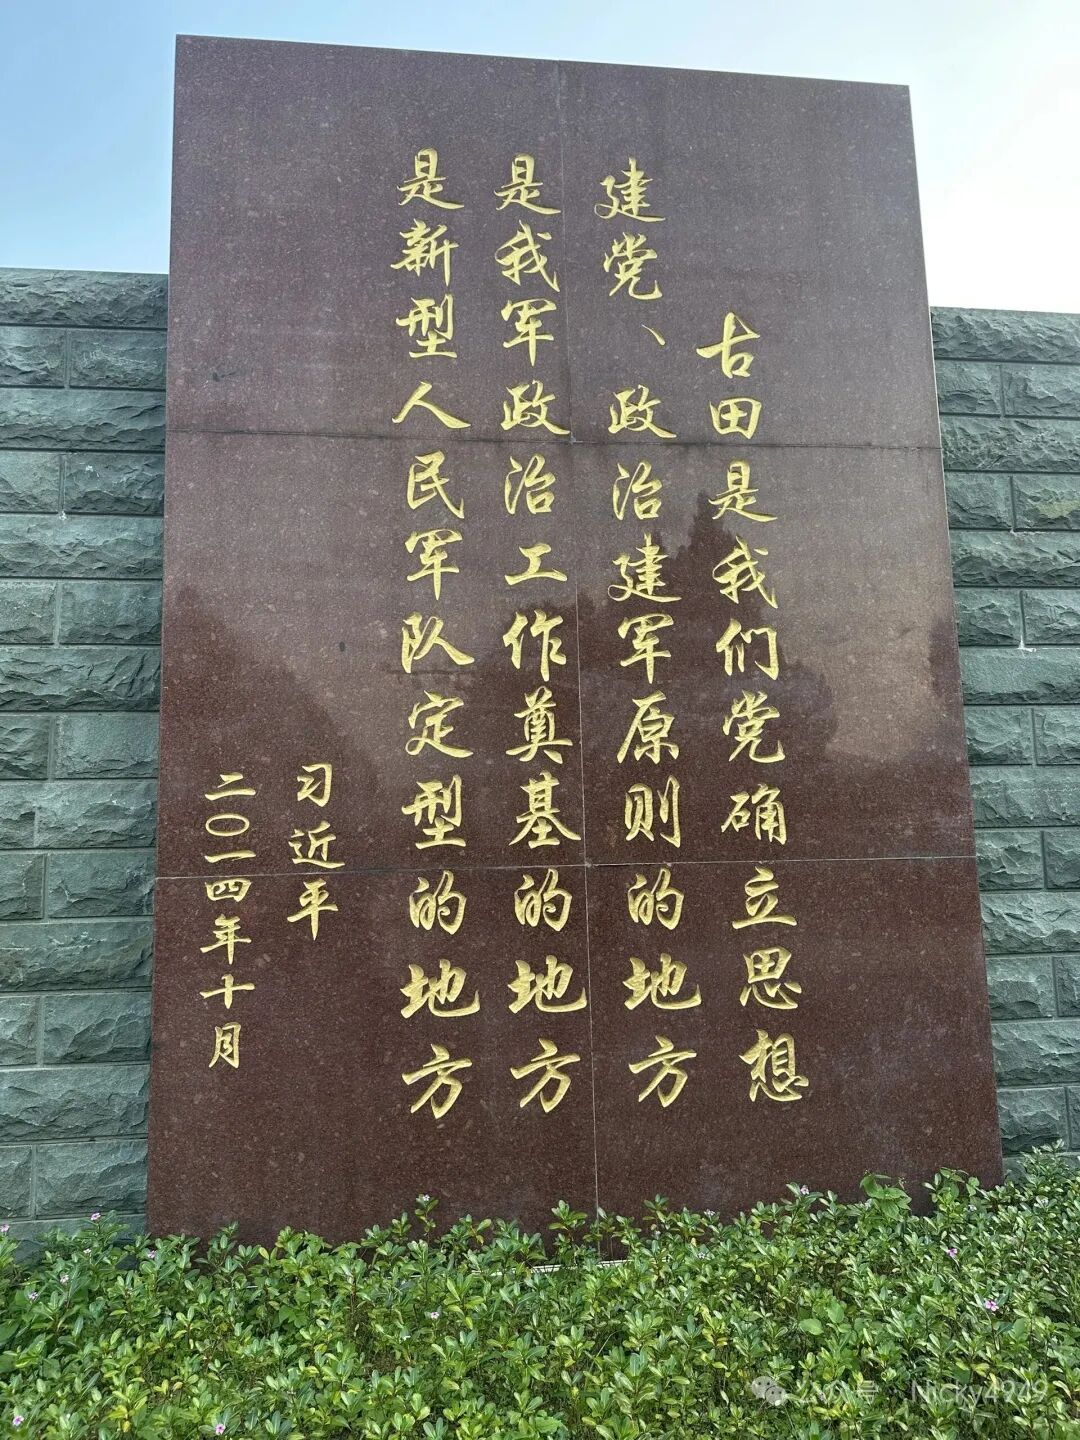 古田是我们党确立思想
建党、政治建军原则的地方
是我军政治工作奠基的地方
是新型人民军队定型的地方
习近平
二〇一四年十月
公众号·Nicky4949